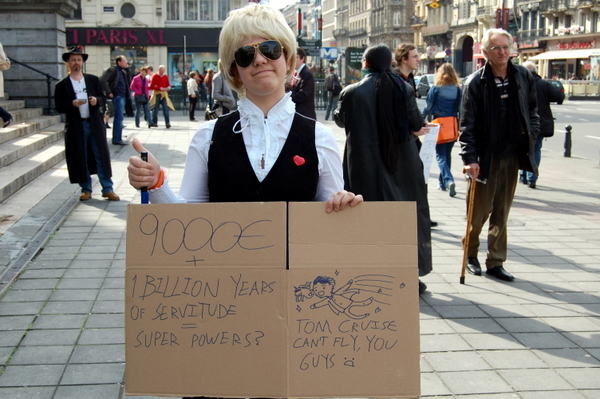 PARIS XL
9000€
+
1 BILLION YEARS
OF SERVITUDE
=
SUPER POWERS?
TOM CRUISE
CANT FLY, YOU
GUYS :(